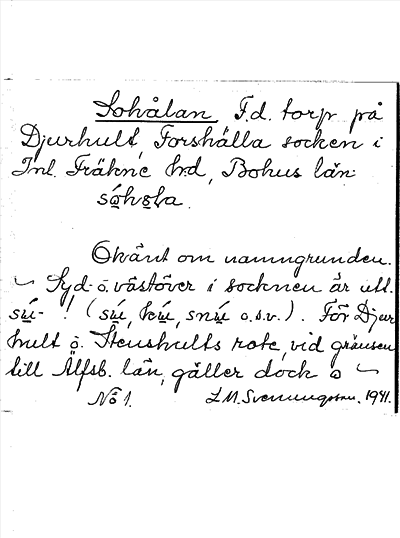 Sohålan F.d. torp på
Djurhult, Forshälla socken i
Inl. Fräkne hrd, Bohus län.
Okänt om namngrunden.
~ Syd- o. västöver i socknen är utt.
sú- ! (sú, kú, snú o.s.v.). För Djur
hult o. Stenshults rote, vid gränsen
till Älfsb. län, gäller dock o ~
No 1. L.M. Svenungsson. 1941.